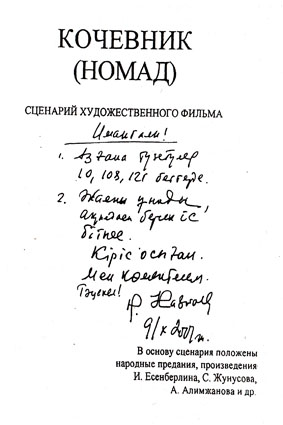 КОЧЕВНИК
(НОМАД)
СЦЕНАРИЙ ХУДОЖЕСТВЕННОГО ФИЛЬМА
Имангали!
1. Аз ғана түзетулер
10, 108, 121 беттерде.
2. Жалпы ұнады,
берек іс
бітпес.
Кіріс осыған.
Мен
Тәуекел!
9/X 2001ж.
В основу сценария положены
народные предания, произведения
И. Есенберлина, С. Жунусова,
А. Алимжанова и др.